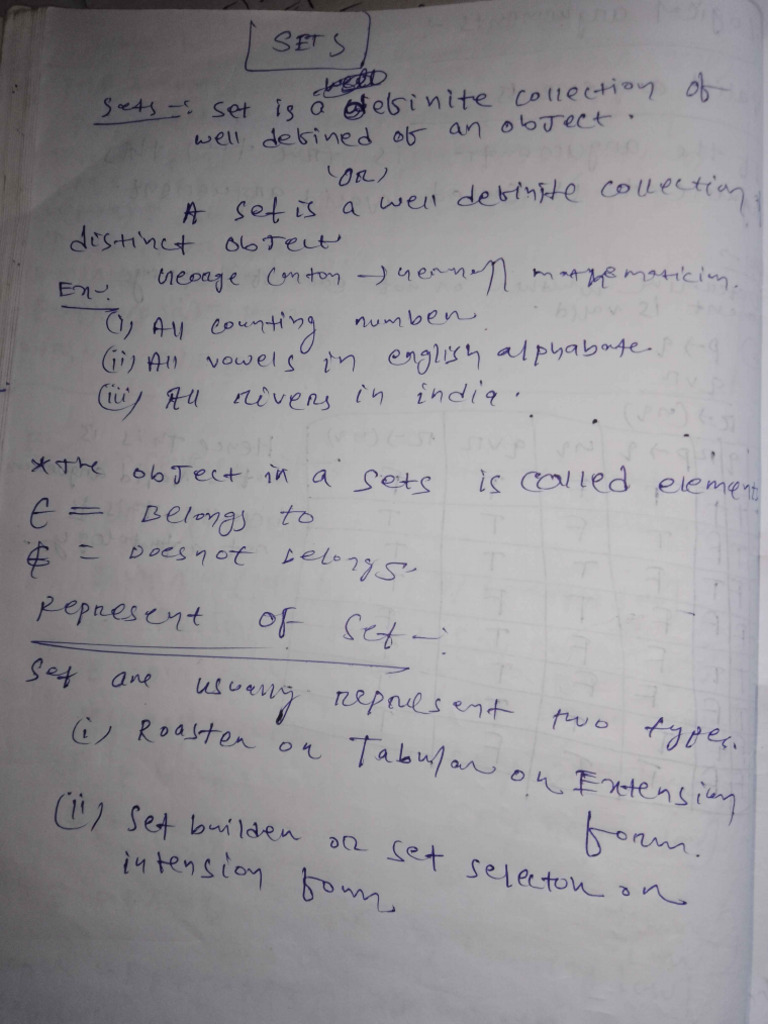 SETS
Sets -: Set is a definite collection of
well defined of an object.
(OR)
A set is a well definite collection
distinct object
Ex-: George Canton → German mathematician.
(i) All counting number
(ii) All vowels in english alphabate
(iii) All rivers in india.
*The object in a sets is called element
∈ = Belongs to
∉ = Does not belongs.
Represent of Set -:
Set are usually represent two types.
(i) Roaster or Tabular or Extension
form.
(ii) Set builder or set selector or
intension form